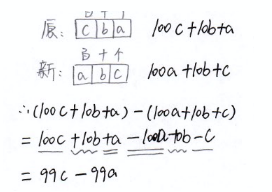 百 十 个
原: c b a 100c+10b+a
百 十 个
新: a b c 100a+10b+c
∴(100c+10b+a)-(100a+10b+c)
=100c+10b+a-100a-10b-c
=99c-99a